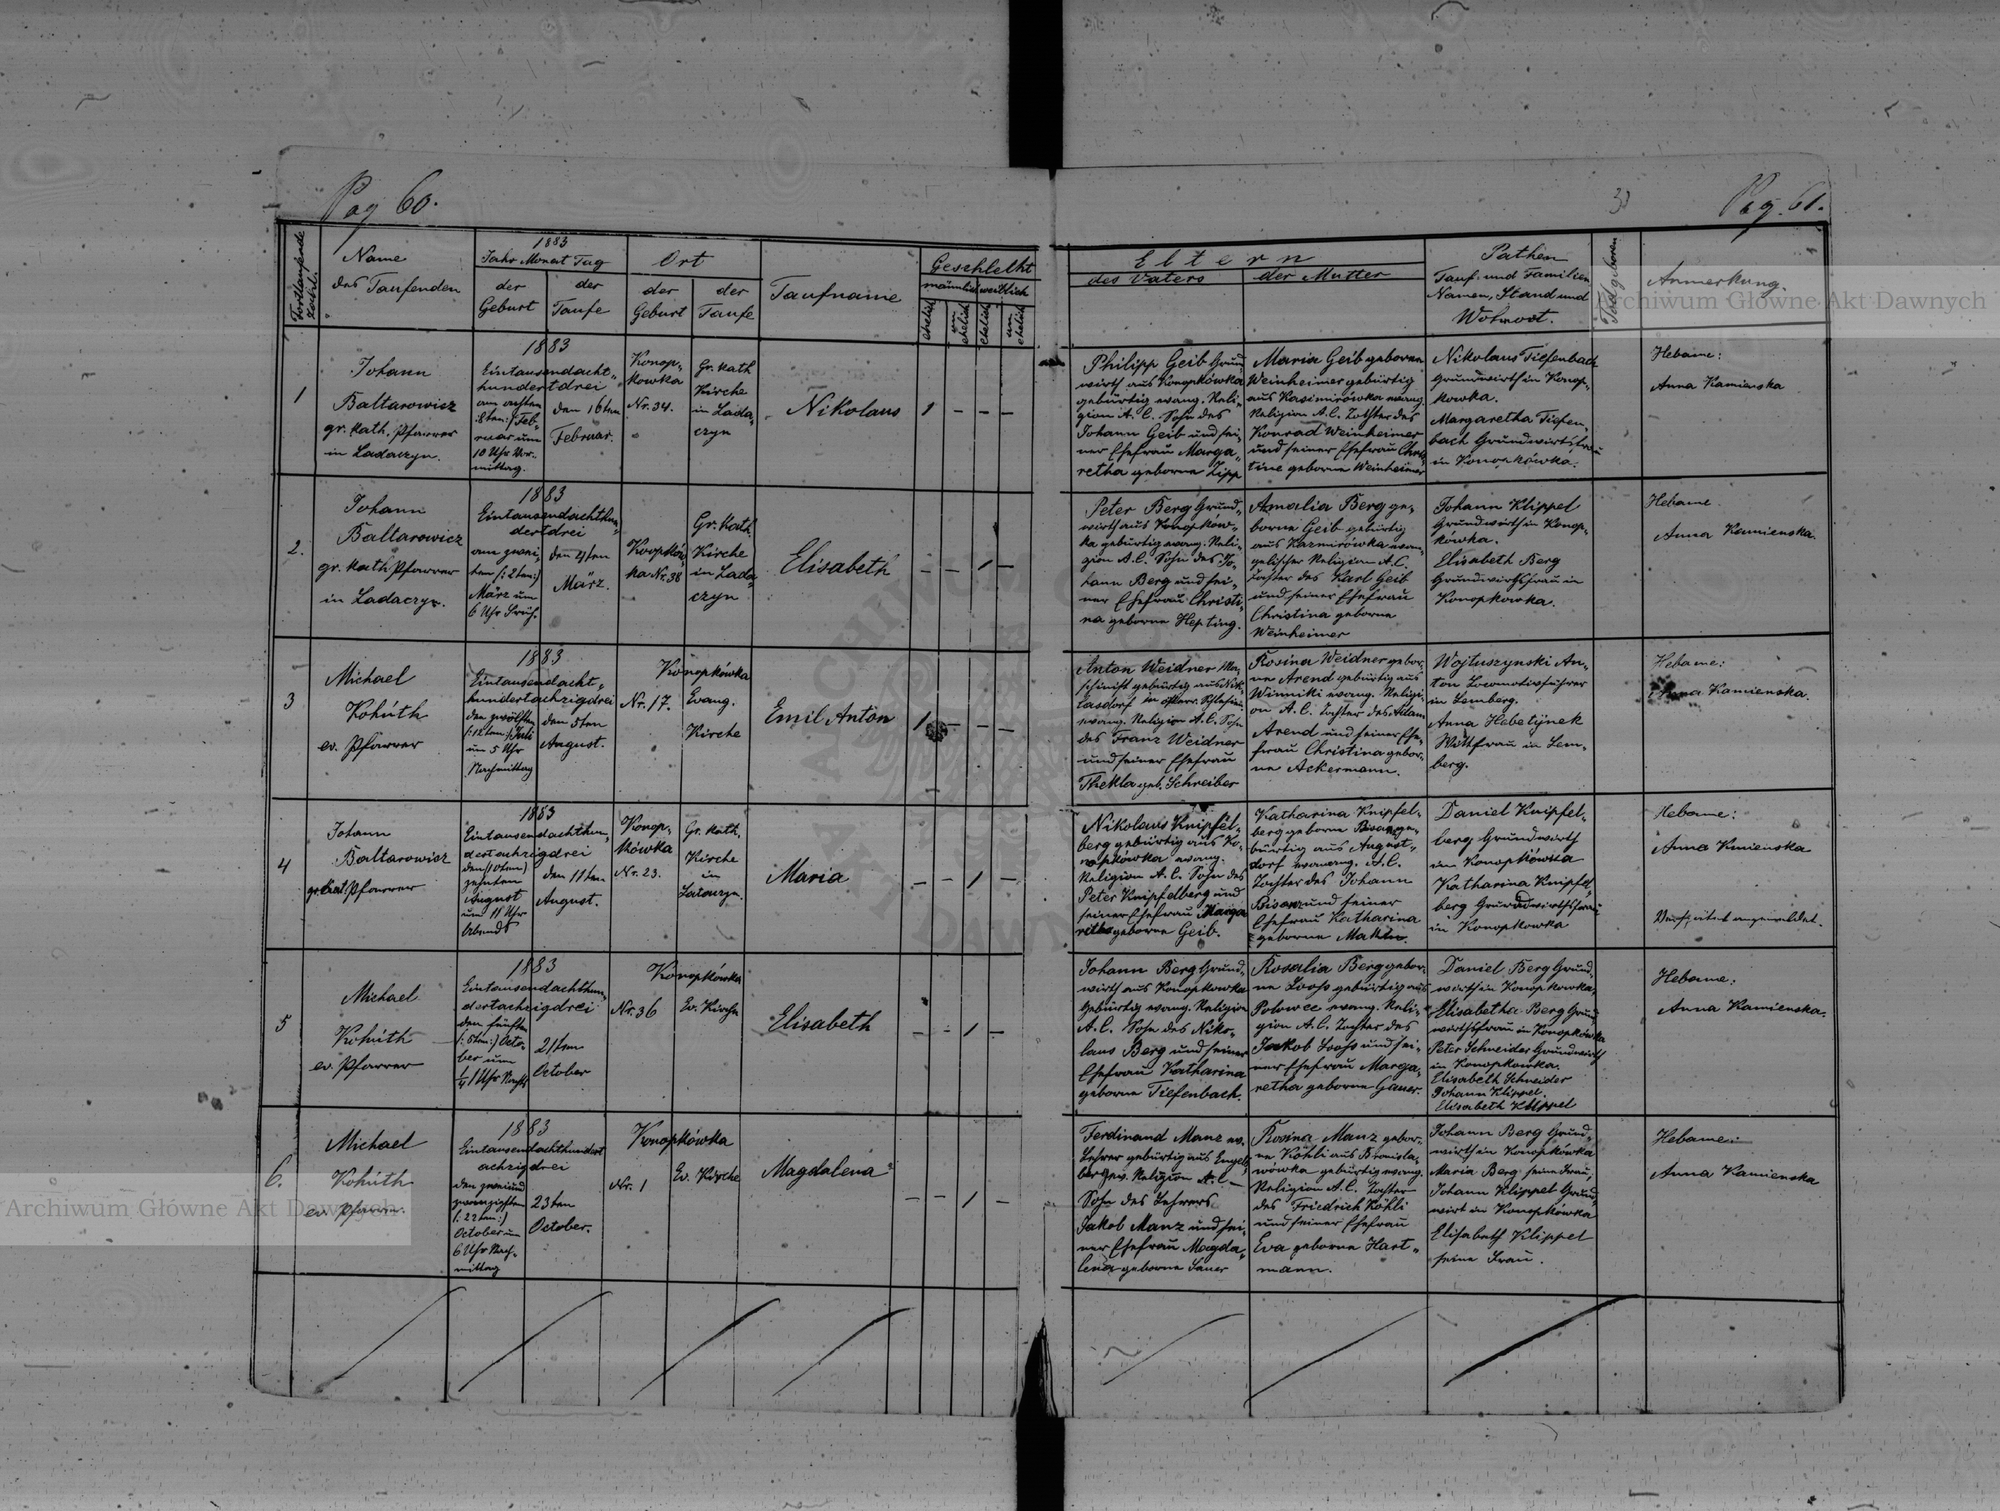 Pag 60.
Pag. 61.
Fortlaufende Zahl.
Name
des Taufenden
1883
Jahr Monat Tag
der
Geburt
der
Taufe
Ort
der
Geburt
der
Taufe
Taufname
Geschlecht
männlich weiblich
ehelich
un ehelich
ehelich
un ehelich
Eltern
des Vaters
der Mutter
Pathen
Tauf- und Familien
Namen, Stand und
Wohnort.
Todgeboren
Anmerkung.
Archiwum Główne Akt Dawnych
1
Johann
Baltarowicz
gr. kath. Pfarrer
in Ladaczyn.
1883
Eintausendacht-
hundertdrei
am achten
8ten:/ Feb-
ruar um
10 Uhr Vor-
mittag.
den 16ten
Februar.
Konop-
kowka
Nr. 34.
Gr. kath
Kirche
in Lada-
czyn
Nikolaus
1 - - -
Philipp Geib Grund
wirth aus Konopkówka
gebürtig evang. Reli-
gion A. C. Sohn des
Johann Geib und sei-
ner Ehefrau Marga-
retha geborne Zipp
Maria Geib geborne
Weinheimer gebürtig
aus Kasimirówka evang.
Religion A. C. Tochter des
Konrad Weinheimer
und seiner Ehefrau Chris-
tine geborne Weinheimer
Nikolaus Tiefenbach
Grundwirth in Konop-
kowka.
Margaretha Tiefen-
bach Grundwirthsfrau
in Konopkówka.
Hebame:
Anna Kamienska
2.
Johann
Baltarowicz
gr. kath Pfarrer
in Ladaczyn.
1883
Eintausendachthun-
dertdrei
am zwei-
ten /: 2ten:/
März um
6 Uhr Früh.
den 4ten
März.
Konopkó-
ka Nr. 38
Gr. kath.
Kirche
in Lada-
czyn
Elisabeth
- - 1 -
Peter Berg Grund-
wirth aus Konopków-
ka gebürtig evang. Reli-
gion A. C. Sohn des Jo-
hann Berg und sei-
ner Ehefrau Christi-
na geborne Hepting.
Amalia Berg ge-
borne Geib gebürtig
aus Kazmirówka evan-
gelischer Religion A. C.
Tochter des Karl Geib
und seiner Ehefrau
Christina geborne
Weinheimer
Johann Klippel
Grundwirth in Konop-
kówka.
Elisabeth Berg
Grundwirthsfrau in
Konopkowka.
Hebame
Anna Kamienska.
3
Michael
Kohúth
ev. Pfarrer
1883
Eintausendacht-
hundertachzigdrei
den zwölften
/:12ten:/ Juli
um 5 Uhr
Nachmittag
den 5ten
August.
Konopkówka
Nr. 17.
Evang.
Kirche
Emil Anton
1 - - -
Anton Weidner Ma-
schinist gebürtig aus Nik-
lasdorf in österr. Schlesien
evang. Religion A. C. Sohn
des Franz Weidner
und seiner Ehefrau
Thekla geb. Schreiber
Rosina Weidner gebor-
ne Arend gebürtig aus
Winniki evang. Religi-
on A. C. Tochter des Adam
Arend und seiner Ehe-
frau Christina gebor-
ne Ackermann.
Wojtuszynski An-
ton Locomotivführer
in Lemberg.
Anna Hebetÿnek
Wittfrau in Lem-
berg.
Hebame:
Anna Kamienska.
4
Johann
Baltarowicz
gr. kat. Pfarrer
1883
Eintausendachthun-
dertachzigdrei
den (10ten)
zehnten
August
um 11 Uhr
Abends
den 11ten
August.
Konop-
kówka
Nr. 23.
Gr. kath.
Kirche
in
Ladaczyn.
Maria
- - 1 -
Nikolaus Knipfel-
berg gebürtig aus Ko-
nopkówka evang.
Religion A. C. Sohn des
Peter Knipfelberg und
seiner Ehefrau Marga
retha geborne Geib.
Katharina Knipfel-
berg geborne Bisanz ge-
bürtig aus August-
dorf evang. A. C.
Tochter des Johann
Bisanz und seiner
Ehefrau Katharina
geborne Maktin.
Daniel Knipfel-
berg Grundwirth
in Konopkówka
Katharina Knipfel-
berg Grundwirthsfrau
in Konopkowka
Hebame:
Anna Kmienska
angemeldet.
5
Michael
Kohúth
ev. Pfarrer
1883
Eintausendachthun-
dertachzigdrei
den fünften
/: 5ten:/ Octo-
ber um
1/4 1 Uhr Nachts
21ten
October
Konopkówka
Nr. 36
Ev. Kirche
Elisabeth
- - 1 -
Johann Berg Grund-
wirth aus Konopkowka
gebürtig evang. Religion
A. C. Sohn des Niko-
laus Berg und seiner
Ehefrau Katharina
geborne Tiefenbach.
Rosalia Berg gebor-
ne Loohs gebürtig aus
Polowce evang. Reli-
gion A. C. Tochter des
Jakob Loohs und sei-
ner Ehefrau Marga-
retha geborne Gauer.
Daniel Berg Grund-
wirth in Konopkowka,
Elisabetha Berg Grund
wirthsfrau in Konopkówka
Peter Schneider Grundwirth
in Konopkowka.
Elisabeth Schneider
Johann Klippel.
Elisabeth Klippel
Hebame:
Anna Kamienska.
6.
Michael
Kohúth
ev. Pfarrer.
1883
Eintausendachthundert
achzigdrei
den zweiund
zwanzigsten
/: 22ten:/
October um
6 Uhr Nach-
mittag
23ten
October.
Konopkówka
Nr. 1
Ev. Kirche
Magdalena
- - 1 -
Ferdinand Manz ev.
Lehrer gebürtig aus Engels-
berg ev. Religion A. C.
Sohn des Lehrers
Jakob Manz und sei-
ner Ehefrau Magda-
lena geborne Sauer
Rosina Manz gebor-
ne Köhli aus Bronisla-
wówka gebürtig evang.
Religion A. C. Tochter
des Friedrich Köhli
und seiner Ehefrau
Eva geborne Hart-
mann.
Johann Berg Grund-
wirth in Konopkówka
Maria Berg seine Frau,
Johann Klippel Grund-
wirt in Konopkówka
Elisabeth Klippel
seine Frau.
Hebame:
Anna Kamienska
Archiwum Główne Akt Dawnych